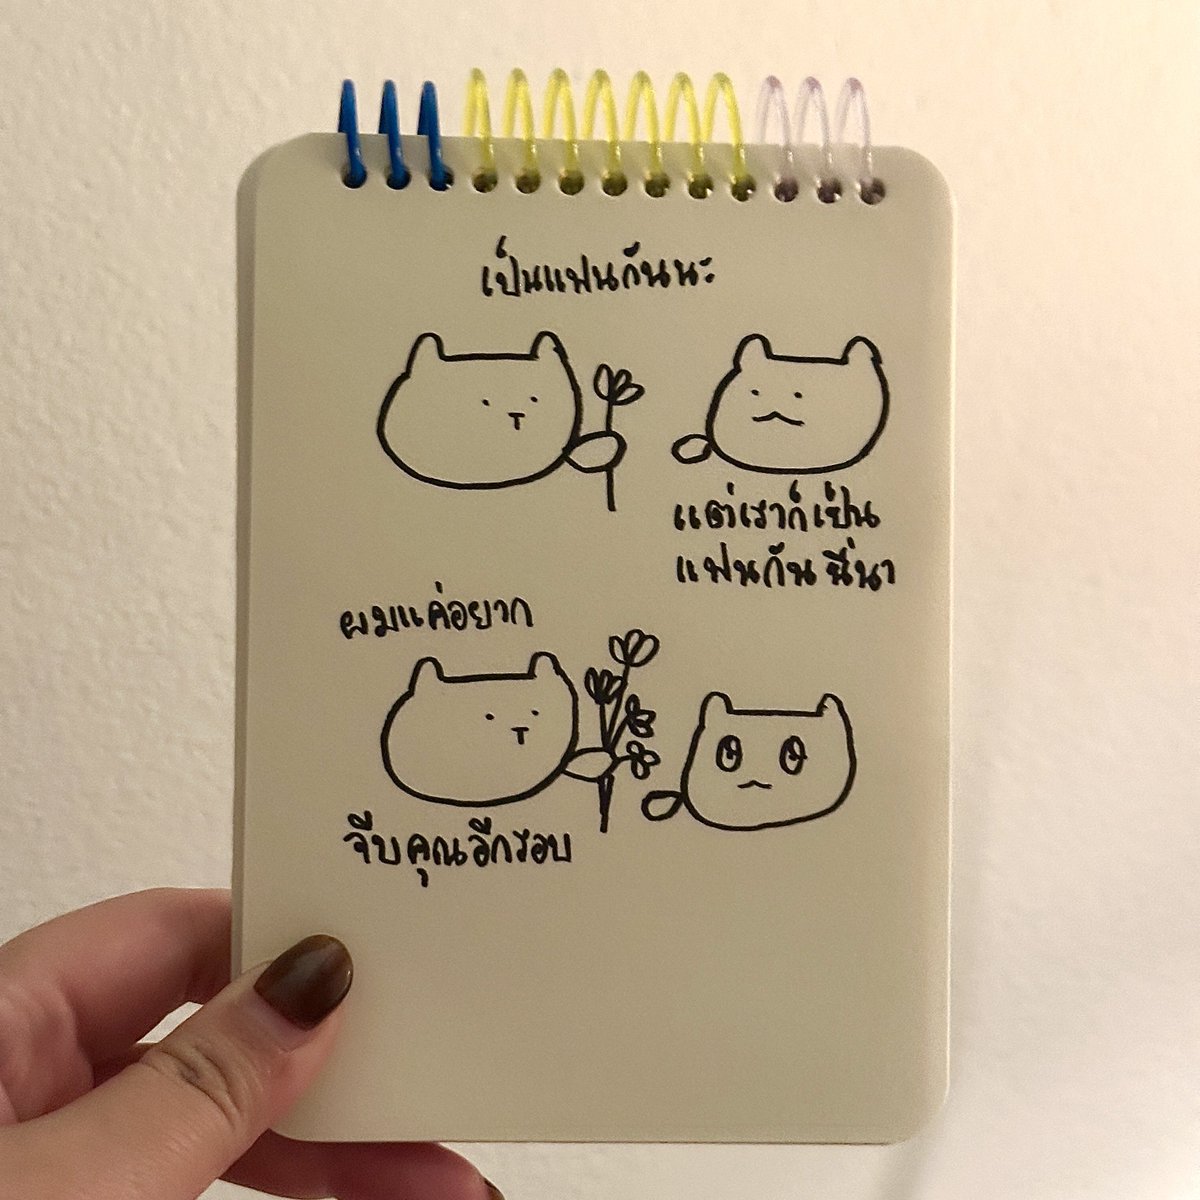 เป็นแฟนกันนะ
แต่เราก็เป็น
แฟนกันนี่นา
ผมแค่อยาก
จีบคุณอีกรอบ